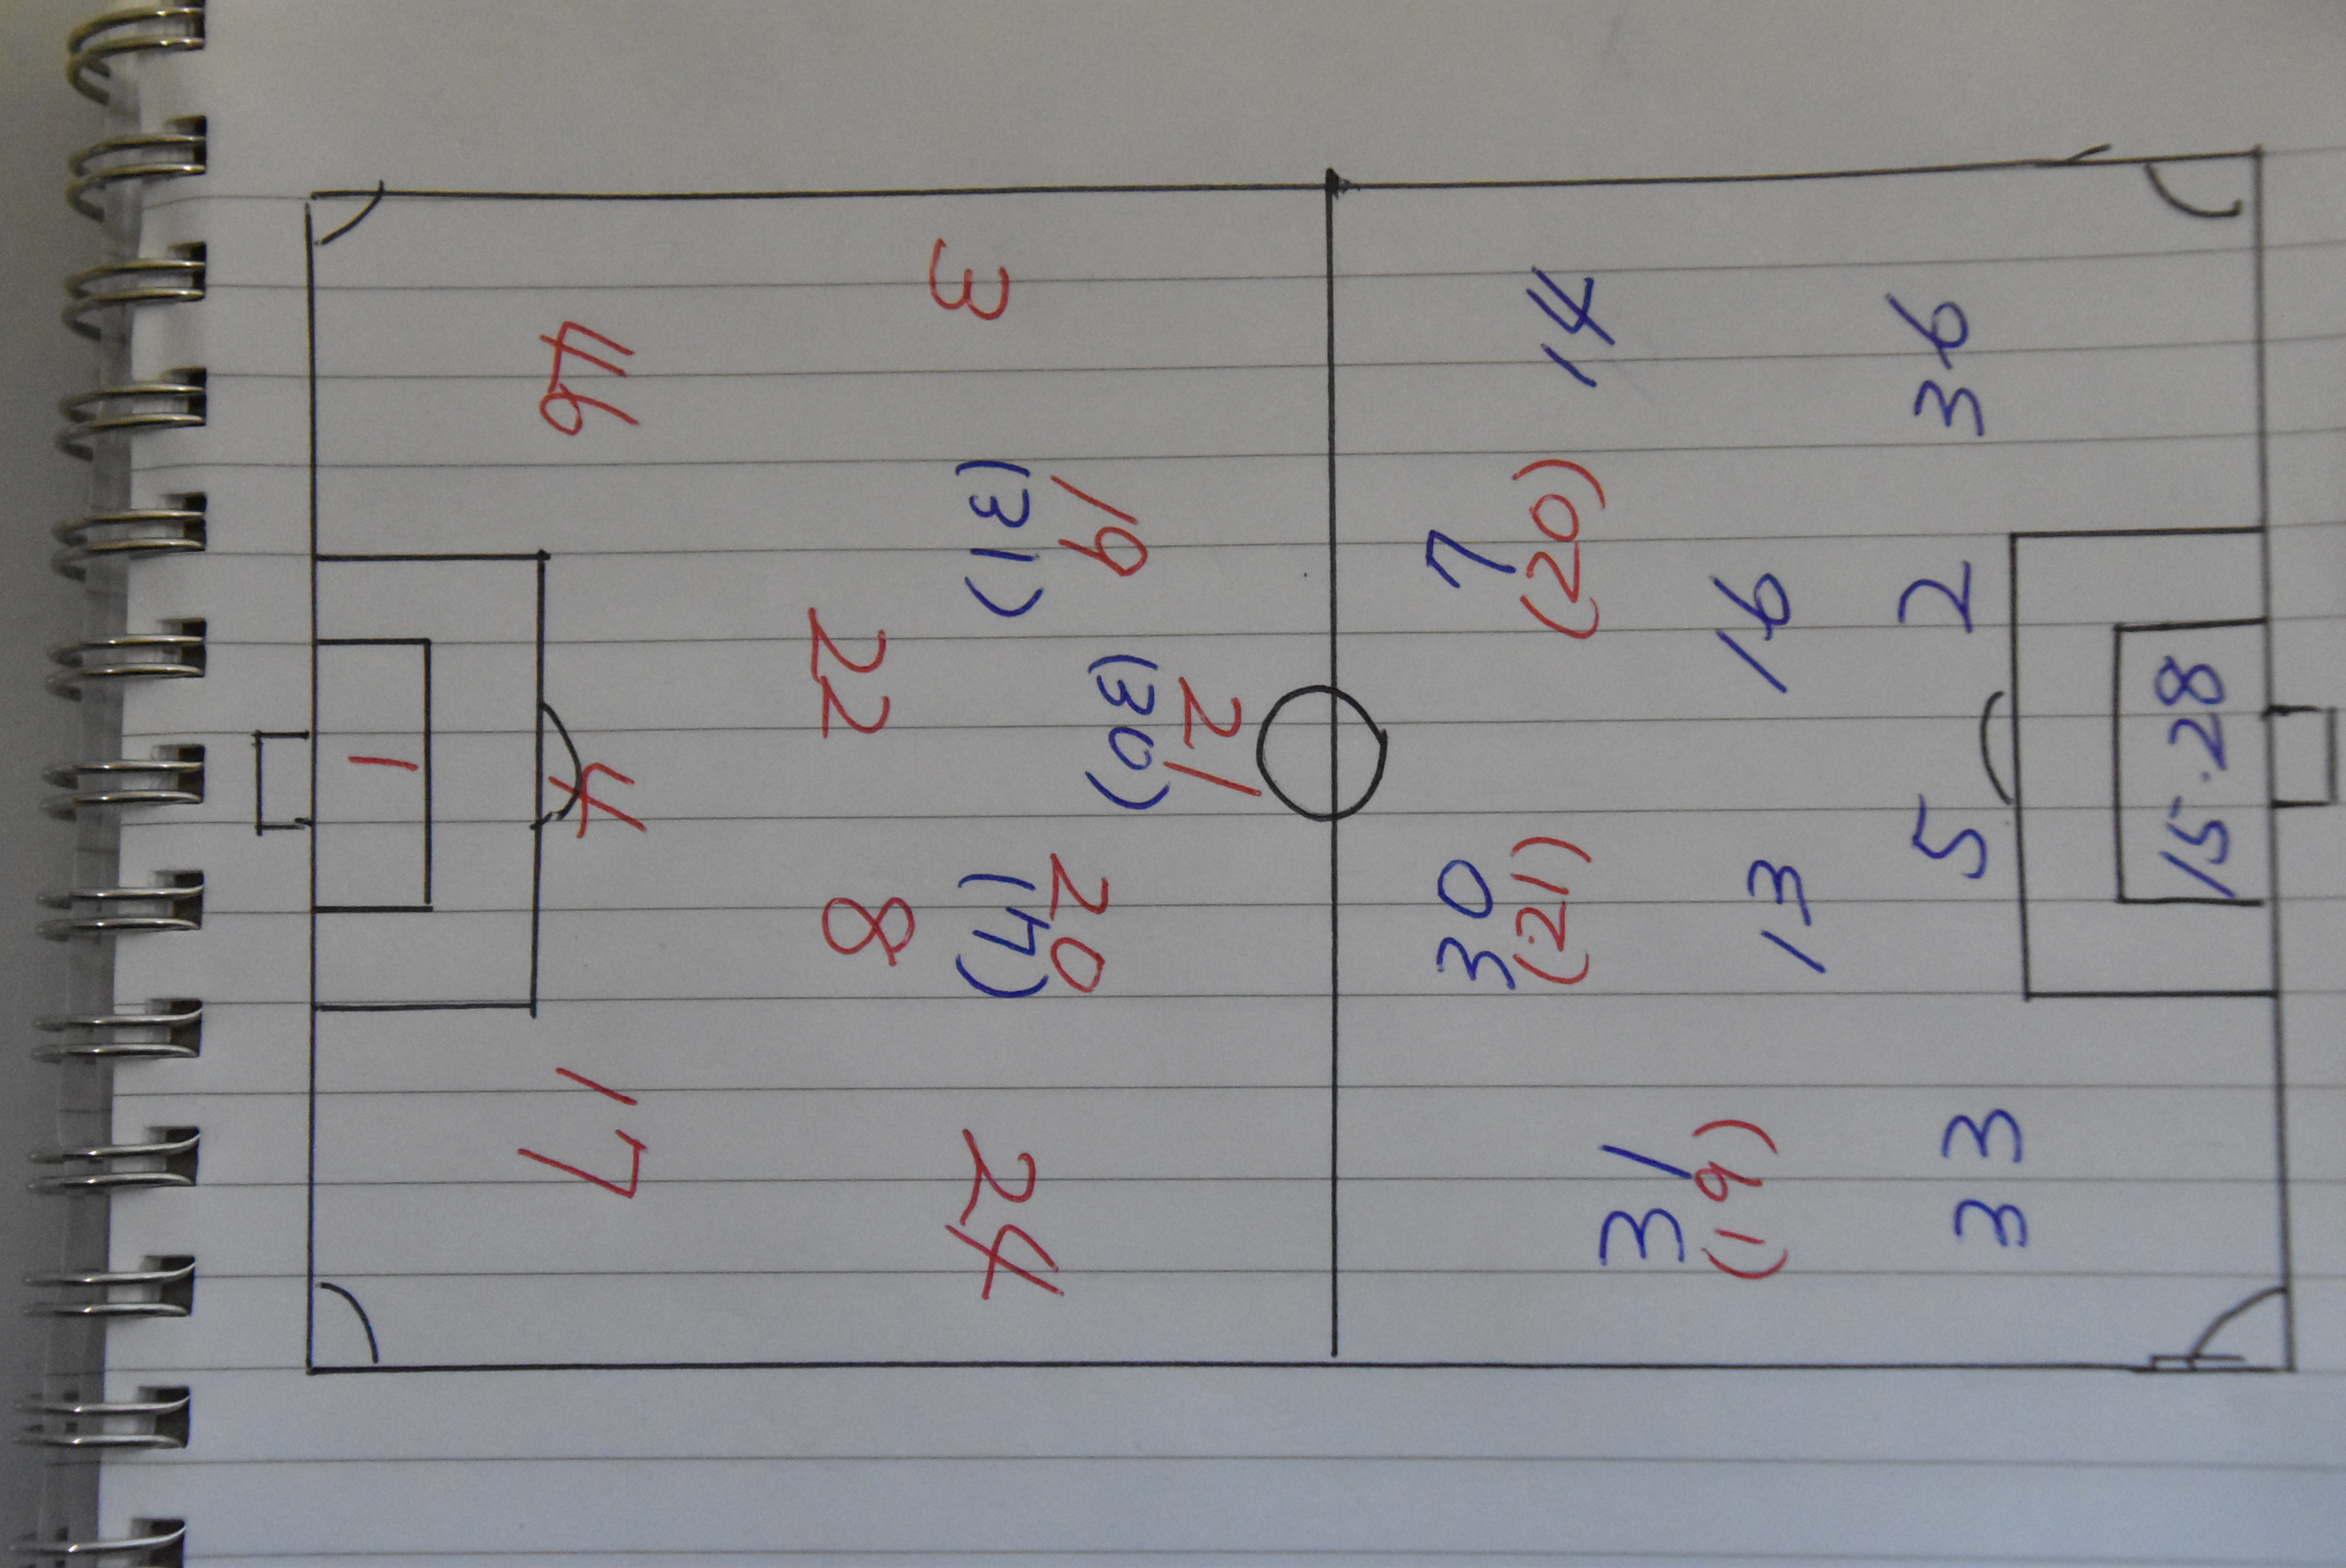 21
(30)
19
(31)
20
(7)
3
24
22
8
46
4
17
1
7
(20)
30
(21)
14
31
(19)
16
13
36
2
5
33
15.28